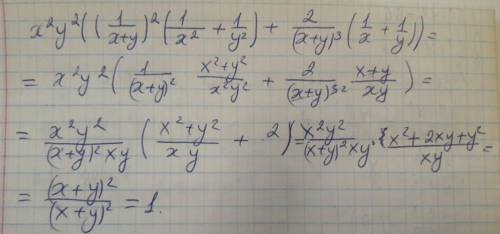 x²y²((1/(x+y))²(1/x² + 1/y²) + 2/(x+y)³(1/x + 1/y)) =
= x²y²(1/(x+y)² (x²+y²)/(x²y²) + 2/(x+y)³² (x+y)/(xy)) =
= x²y²/((x+y)²xy) ((x²+y²)/(xy) + 2) = x²y²/((x+y)²xy) · (x²+2xy+y²)/(xy) =
= (x+y)²/(x+y)² = 1.